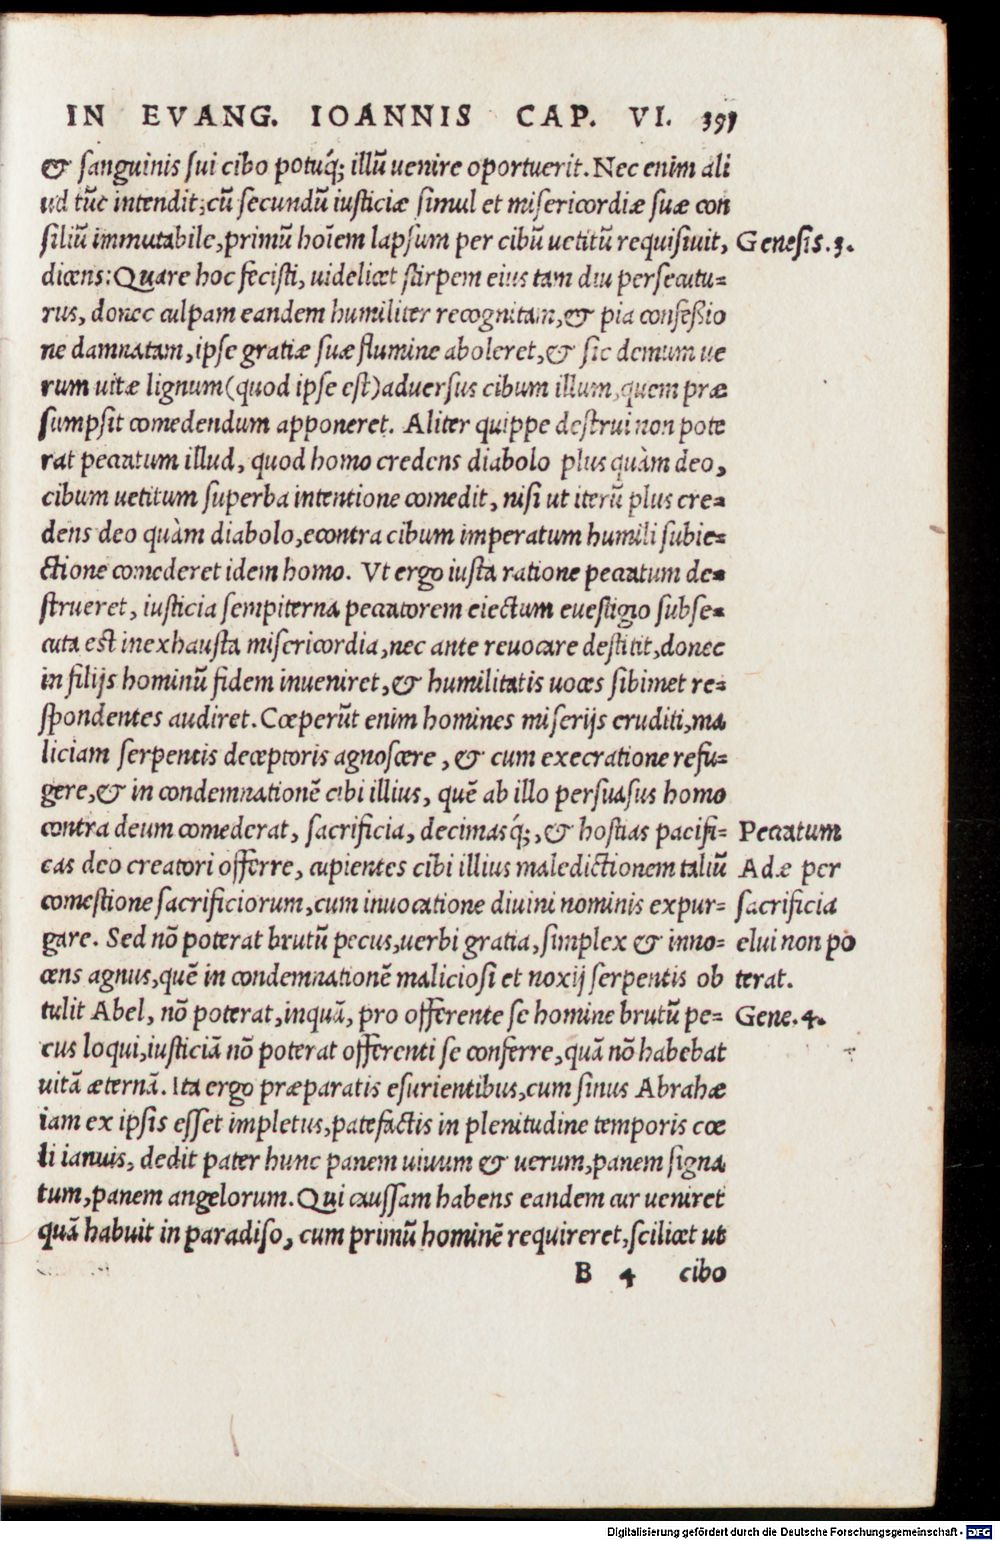 IN EVANG. IOANNIS CAP. VI. 391
& sanguinis sui cibo potuq́; illū uenire oportuerit. Nec enim ali
ud tūc intendit, cū secundū iusticiæ simul et misericordiæ suæ con
siliū immutabile, primū hoīem lapsum per cibū uetitū requisiuit, Genesis.3.
dicens: Quare hoc fecisti, uidelicet stirpem eius tam diu persecutu=
rus, donec culpam eandem humiliter recognitam, & pia confeßio
ne damnatam, ipse gratiæ suæ flumine aboleret, & sic demum ue
rum uitæ lignum (quod ipse est) aduersus cibum illum, quem præ
sumpsit comedendum apponeret. Aliter quippe destrui non pote
rat peccatum illud, quod homo credens diabolo plus quàm deo,
cibum uetitum superba intentione comedit, nisi ut iterū plus cre=
dens deo quàm diabolo, econtra cibum imperatum humili subie=
ctione comederet idem homo. Vt ergo iusta ratione peccatum de=
strueret, iusticia sempiterna peccatorem eiectum euestigio subse=
cuta est inexhausta misericordia, nec ante reuocare destitit, donec
in filijs hominū fidem inueniret, & humilitatis uoces sibimet re=
spondentes audiret. Cœperūt enim homines miserijs eruditi, ma
liciam serpentis deceptoris agnoscere, & cum execratione refu=
gere, & in condemnationē cibi illius, quē ab illo persuasus homo
contra deum comederat, sacrificia, decimasq́;, & hostias pacifi= Peccatum
cas deo creatori offerre, cupientes cibi illius maledictionem taliū Adæ per
comestione sacrificiorum, cum inuocatione diuini nominis expur= sacrificia
gare. Sed nō poterat brutū pecus, uerbi gratia, simplex & inno= elui non po
cens agnus, quē in condemnationē maliciosi et noxij serpentis ob terat.
tulit Abel, nō poterat, inquā, pro offerente se homine brutū pe= Gene.4.
cus loqui, iusticiā nō poterat offerenti se conferre, quā nō habebat
uitā æternā. Ita ergo præparatis esurientibus, cum sinus Abrahæ
iam ex ipsis esset impletus, patefactis in plenitudine temporis cœ
li ianuis, dedit pater hunc panem uiuum & uerum, panem signa
tum, panem angelorum. Qui caussam habens eandem cur ueniret
quā habuit in paradiso, cum primū hominē requireret, scilicet ut
B 4 cibo
Digitalisierung gefördert durch die Deutsche Forschungsgemeinschaft - DFG